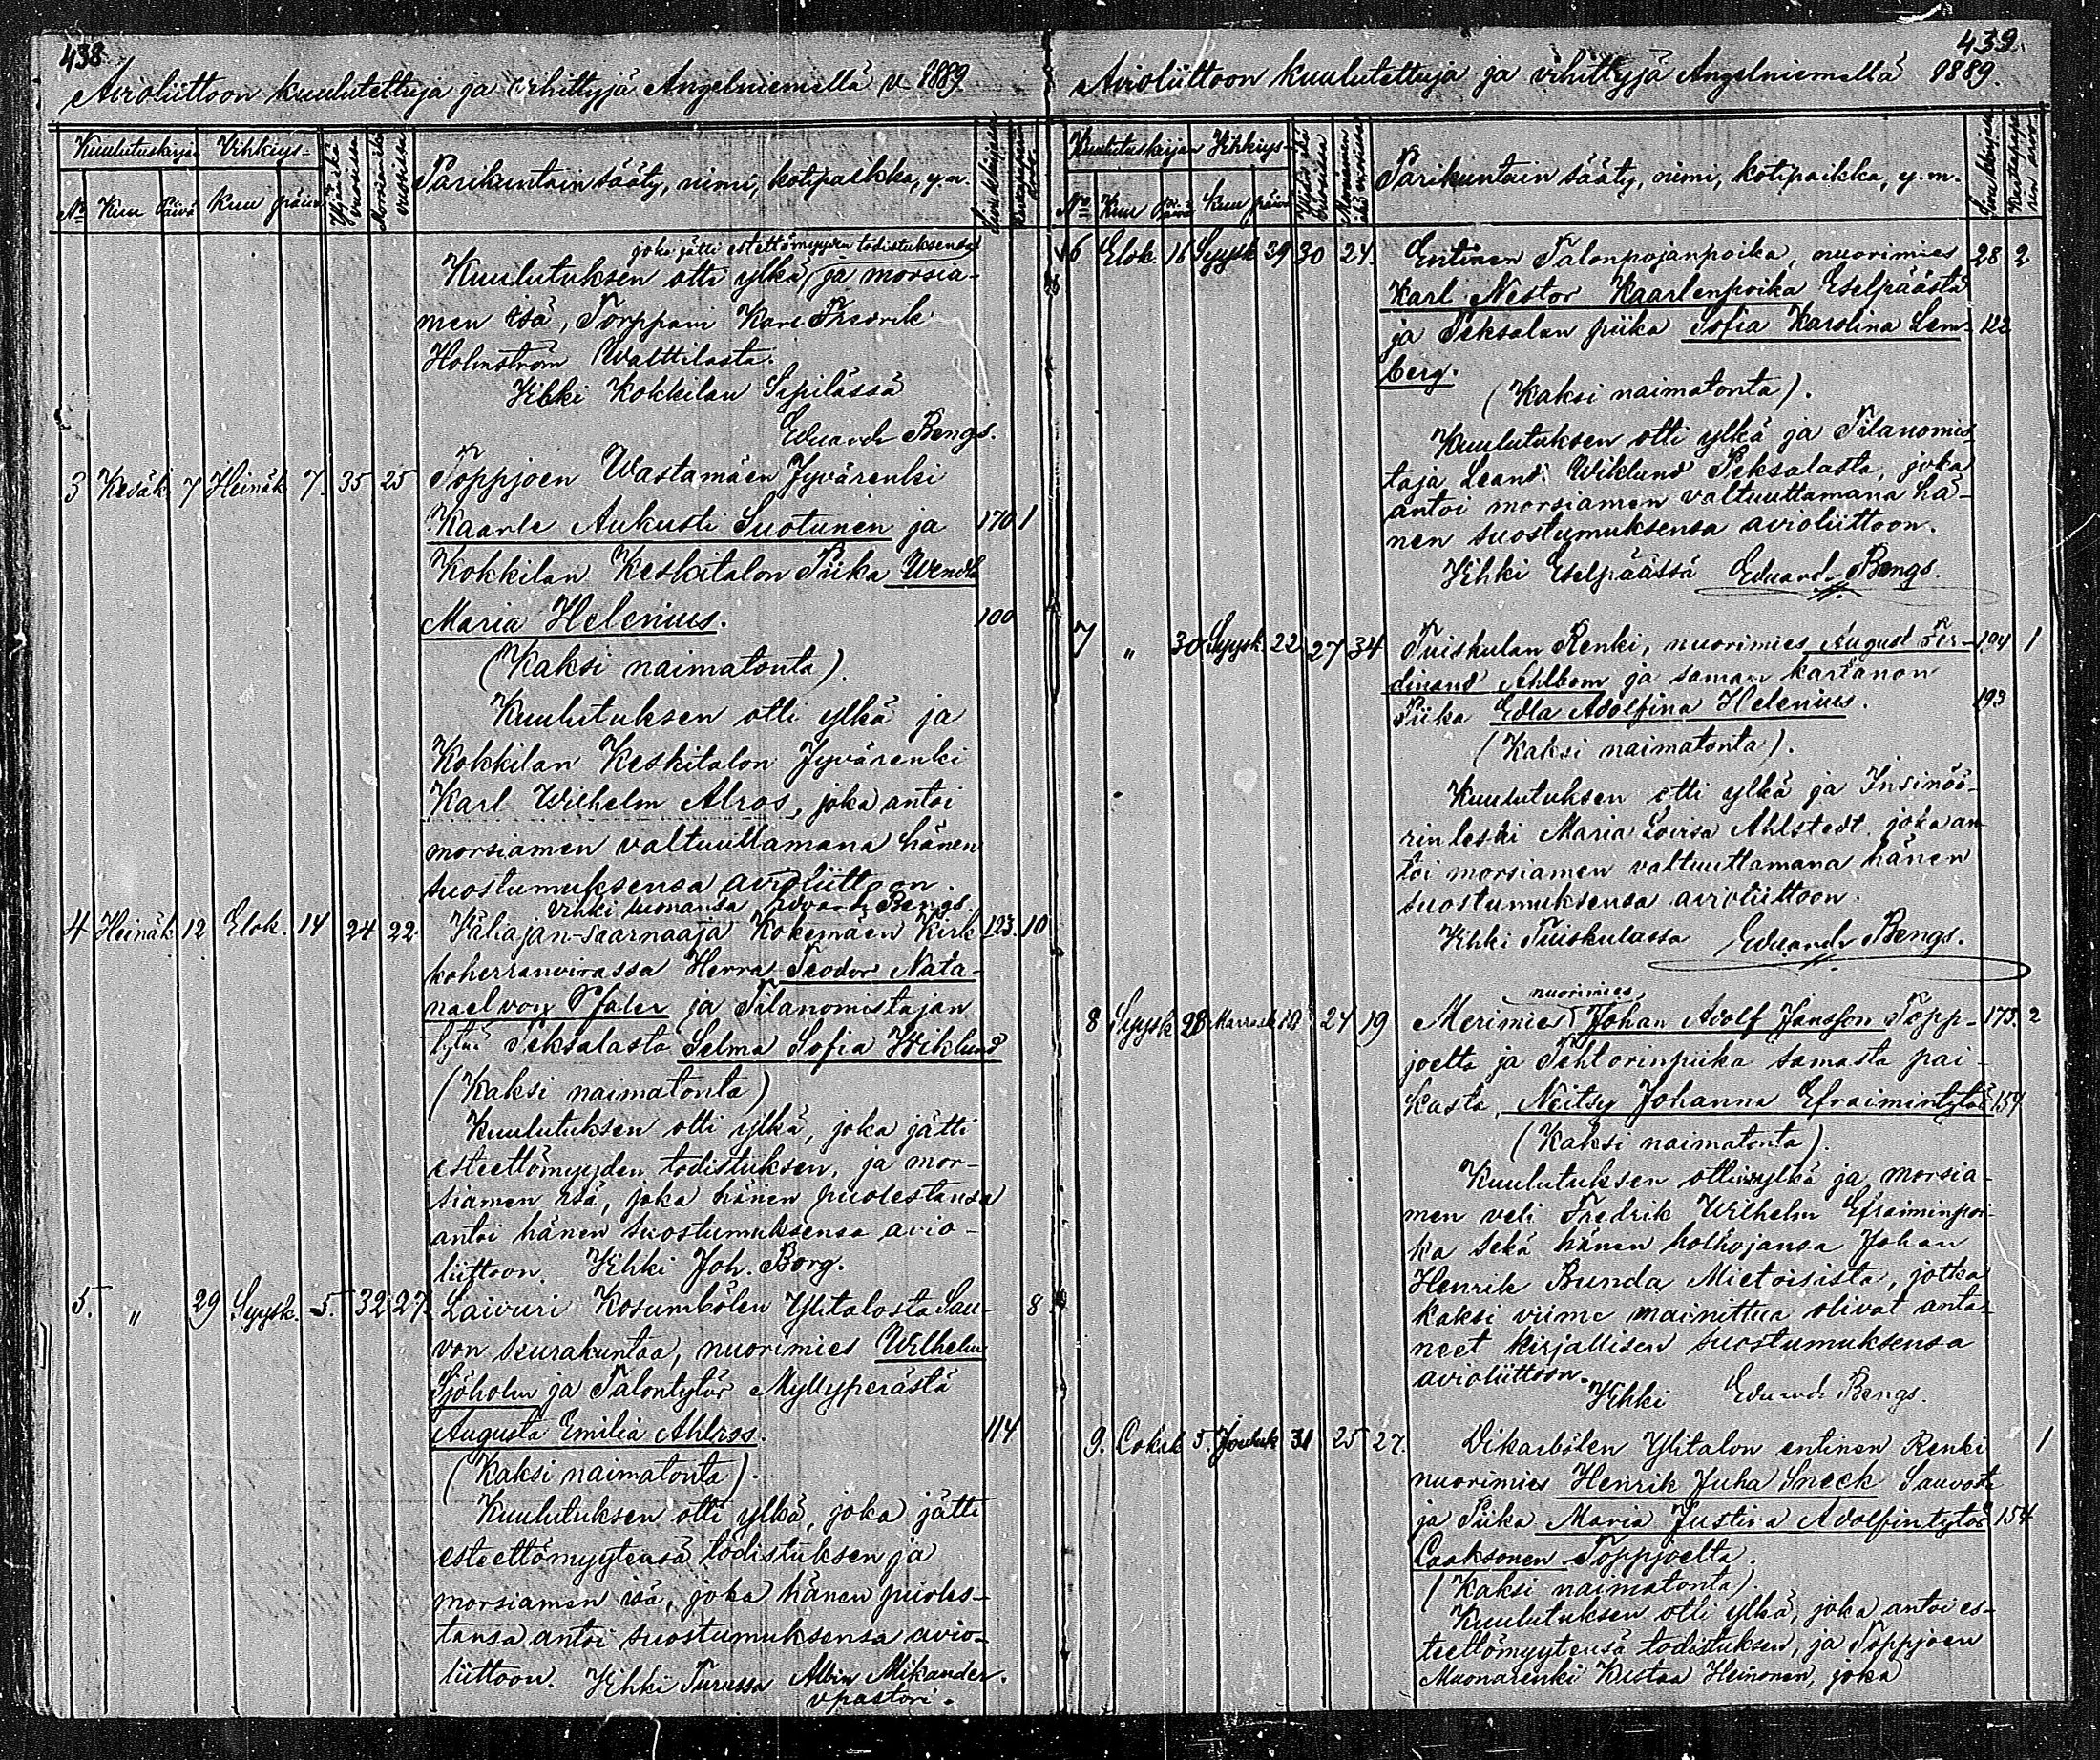 438
Avioliittoon kuulutettuja ja vihittyjä Angelniemellä v. 1889.
Kuulutuskirjan Vihkiys-
Yljän ikä vuosissa
Morsiamen ikä vuosissa
Parikuntain sääty, nimi, kotipaikka, y.m.
No Kuu Päivä Kuu päivä
joka jätti esteettömyyden todistuksensa
Kuulutuksen otti ylkä, ja morsia-
men isä, Torppari Karl Fredrik
Holmström Walttilasta.
Vihki Kokkilan Sipilässä
Eduard Bengs.
3 Kesäk. 7 Heinäk. 7. 35 25 Toppjoen Wastamäen Jyvärenki
Kaarle Aukusti Suotunen ja 170 1
Kokkilan Keskitalon Piika Wendla
Maria Helenius. 100
(Kaksi naimatonta).
Kuulutuksen otti ylkä ja
Kokkilan Keskitalon Jyvärenki
Karl Wilhelm Alros, joka antoi
morsiamen valtuuttamana hänen
suostumuksensa avioliittoon.
Vihki luonansa Edvard Bengs.
4 Heinäk. 12 Elok. 14 24 22. Väliajan-saarnaaja Kokemäen Kirk 123. 10
koherranvirassa Herra Teodor Nata-
nael von Pfaler ja Tilanomistajan
tytär Peksalasta Selma Sofia Wiklund
(Kaksi naimatonta)
Kuulutuksen otti ylkä, joka jätti
esteettömyyden todistuksen, ja mor-
siamen isä, joka hänen puolestansa
antoi hänen suostumuksensa avio-
liittoon. Vihki Joh. Borg.
5. " 29 Syysk. 5. 32 27. Laivuri Kosumbölen Ylitalosta Sau- 8
von seurakuntaa, nuorimies Wilhelm
Sjöholm ja Talontytär Myllyperästä
Augusta Emilia Ahlros. 114
(Kaksi naimatonta).
Kuulutuksen otti ylkä, joka jätti
esteettömyytensä todistuksen ja
morsiamen isä, joka hänen puoles-
tansa antoi suostumuksensa avio-
liittoon. Vihki Turussa Albin Mikander.
v.pastori.
439.
Avioliittoon kuulutettuja ja vihittyjä Angelniemellä 1889.
Kuulutuskirjan Vihkiys-
Parikuntain sääty, nimi, kotipaikka, y.m.
No Kuu Päivä Kuu päivä
6 Elok. 16 Syysk 29 30 24. Entinen Talonpojanpoika, nuorimies 28 2
Karl Nestor Kaarlenpoika Eselpäästä
ja Peksalan piika Sofia Karolina Lem- 122
berg.
(Kaksi naimatonta).
Kuulutuksen otti ylkä ja Tilanomis-
taja Leand. Wiklund Peksalasta, joka
antoi morsiamen valtuuttamana hä-
nen suostumuksensa avioliittoon.
Vihki Eselpäässä Eduard Bengs.
7 " 30 Syysk. 22. 27 34 Tuiskulan Renki, nuorimies August Fer- 194 1
dinand Ahlbom ja saman kartanon
Piika Edla Adolfina Helenius. 193
(Kaksi naimatonta).
Kuulutuksen otti ylkä ja Insinöö-
rin leski Maria Lovisa Ahlstedt, joka an-
toi morsiamen valtuuttamana hänen
suostumuksensa avioliittoon.
Vihki Tuiskulassa Eduard Bengs.
nuorimies
8 Syysk 28 Marrask 10 24 19 Merimies Johan Adolf Jansson Topp- 175. 2
joelta ja Tehtorinpiika samasta pai-
kasta, Neitsy Johanna Efraimintytär 157
(Kaksi naimatonta).
Kuulutuksen otti ylkä ja morsia-
men veli Fredrik Wilhelm Efraiminpoi-
ka sekä hänen holhojansa Johan
Henrik Bunda Mietoisista, jotka
kaksi viime mainittua olivat anta-
neet kirjallisen suostumuksensa
avioliittoon.
Vihki Eduard Bengs.
9. Lokak 5. Jouluk 31 25 27. Vikarbölen Ylitalon entinen Renki 1
nuorimies Henrik Juha Sneck Sauvosta
ja Piika Maria Justina Adolfintytär 154
Laaksonen Toppjoelta.
(Kaksi naimatonta).
Kuulutuksen otti ylkä, joka antoi es-
teettömyytensä todistuksen, ja Toppjoen
Muonarenki Kustaa Heinonen, joka